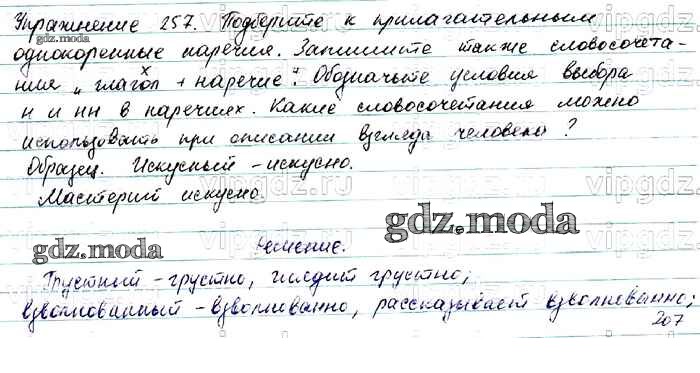 Упражнение 257. Подберите к прилагательным
однокоренные наречия. Запишите также словосочета-
ния „глагол + наречие". Обозначьте условия выбора
н и нн в наречиях. Какие словосочетания можно
использовать при описании взгляда человека?
Образец. Искусный - искусно.
Мастерит искусно.
gdz.moda
gdz.moda
gdz.moda
Решение.
Грустный - грустно, глядит грустно;
взволнованный - взволнованно, рассказывает взволнованно;
207
vipgdz.ru